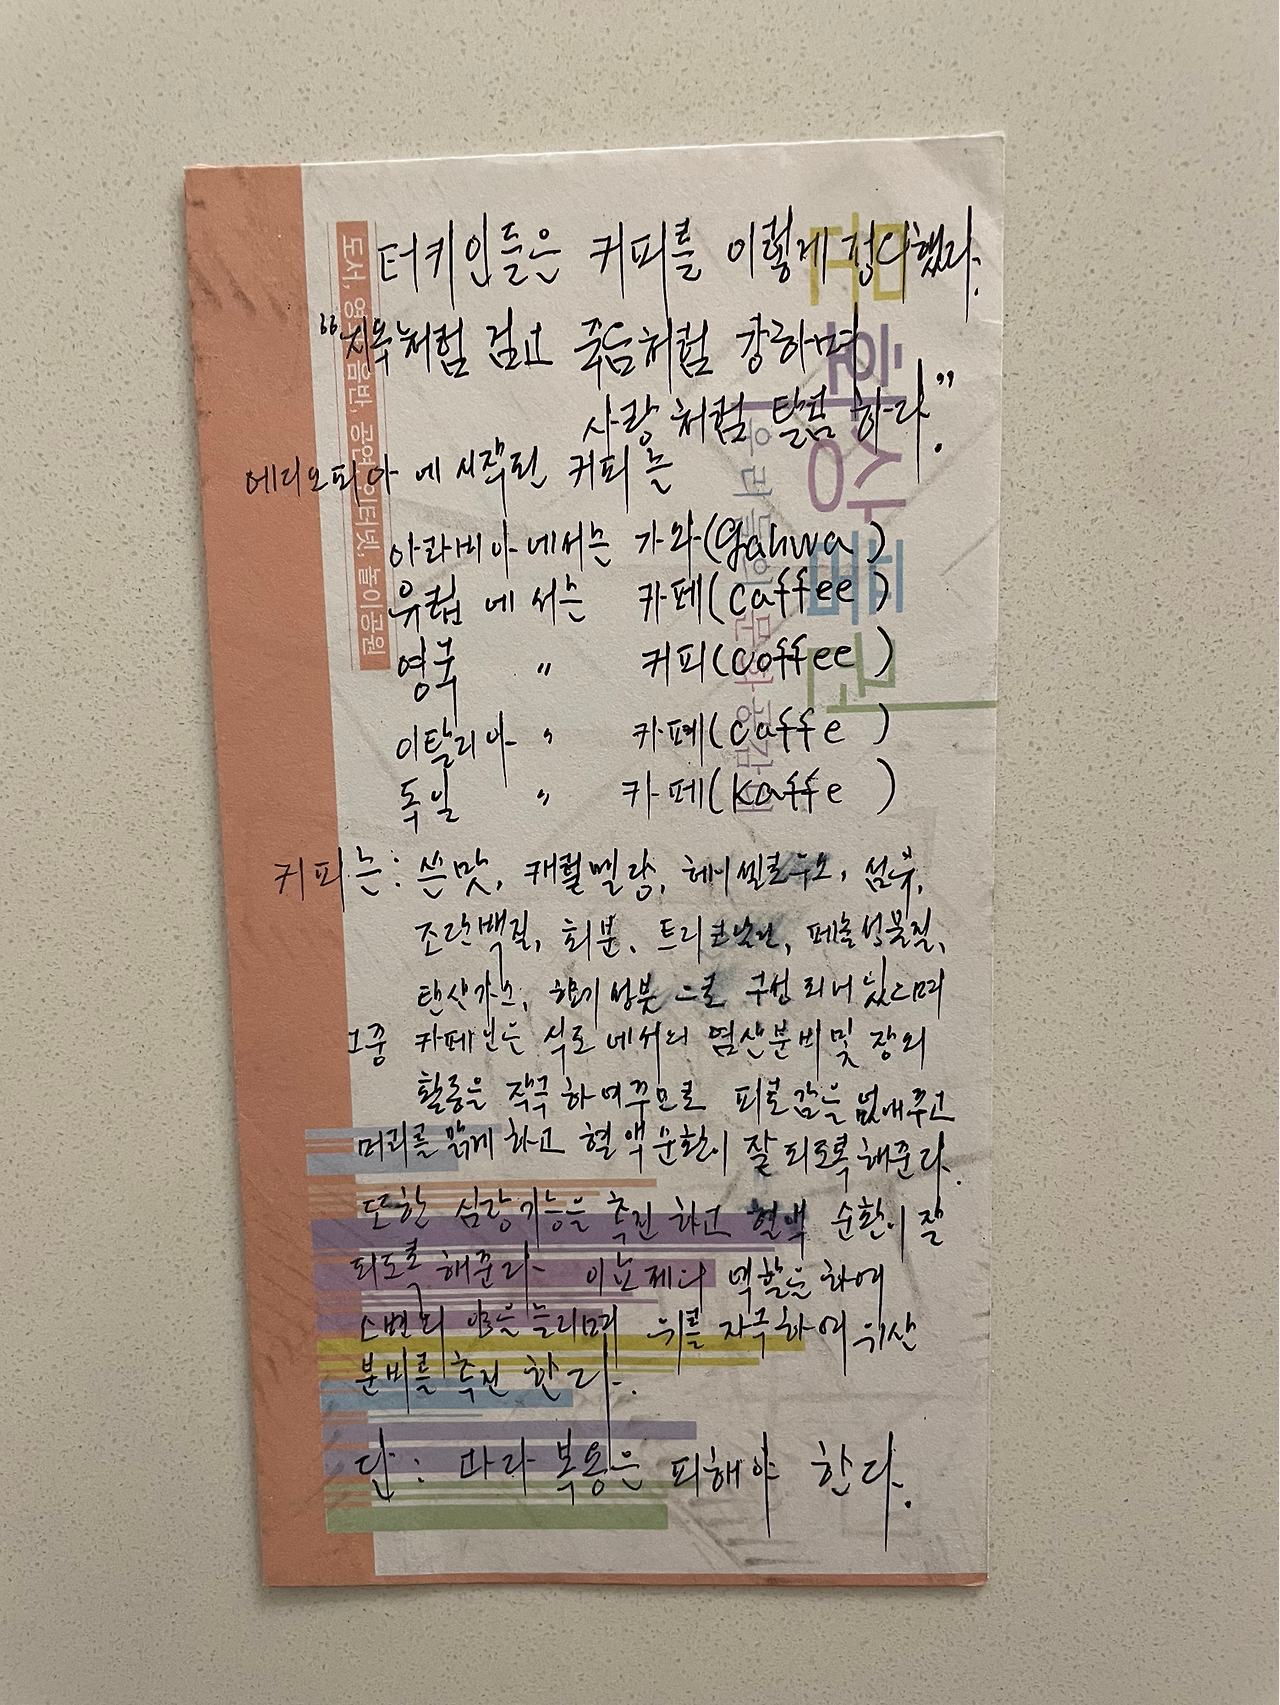 터키인들은 커피를 이렇게 정의했다.
"지옥처럼 검고 죽음처럼 강하며
사랑처럼 달콤하다."
에디오피아에 시작된 커피는
아라비아에서는 가와(gahwa)
유럽에서는 카페(caffee)
영국 〃 커피(coffee)
이탈리아 〃 카페(caffe)
독일 〃 카페(kaffe)
커피는: 쓴맛, 섬유,
조단백질, 회분, 페놀성물질,
탄산가스, 향기성분으로 구성되어 있으며
그중 카페인은 염산분비 및 장의
활동을 작극하여주므로 피로감을 없애주고
머리를 맑게하고 혈액순환이 잘 되도록 해준다.
또한 심장기능을 촉진하고 혈액 순환이 잘
되도록 해준다. 이뇨제 역할을 하여
소변의 양을 늘리며 위를 자극하여 위산
분비를 촉진 한다.
단: 과다 복용은 피해야 한다.
도서, 영화, 음반, 공연, 인터넷, 놀이공원
문화상품권
우리들의 문화공감